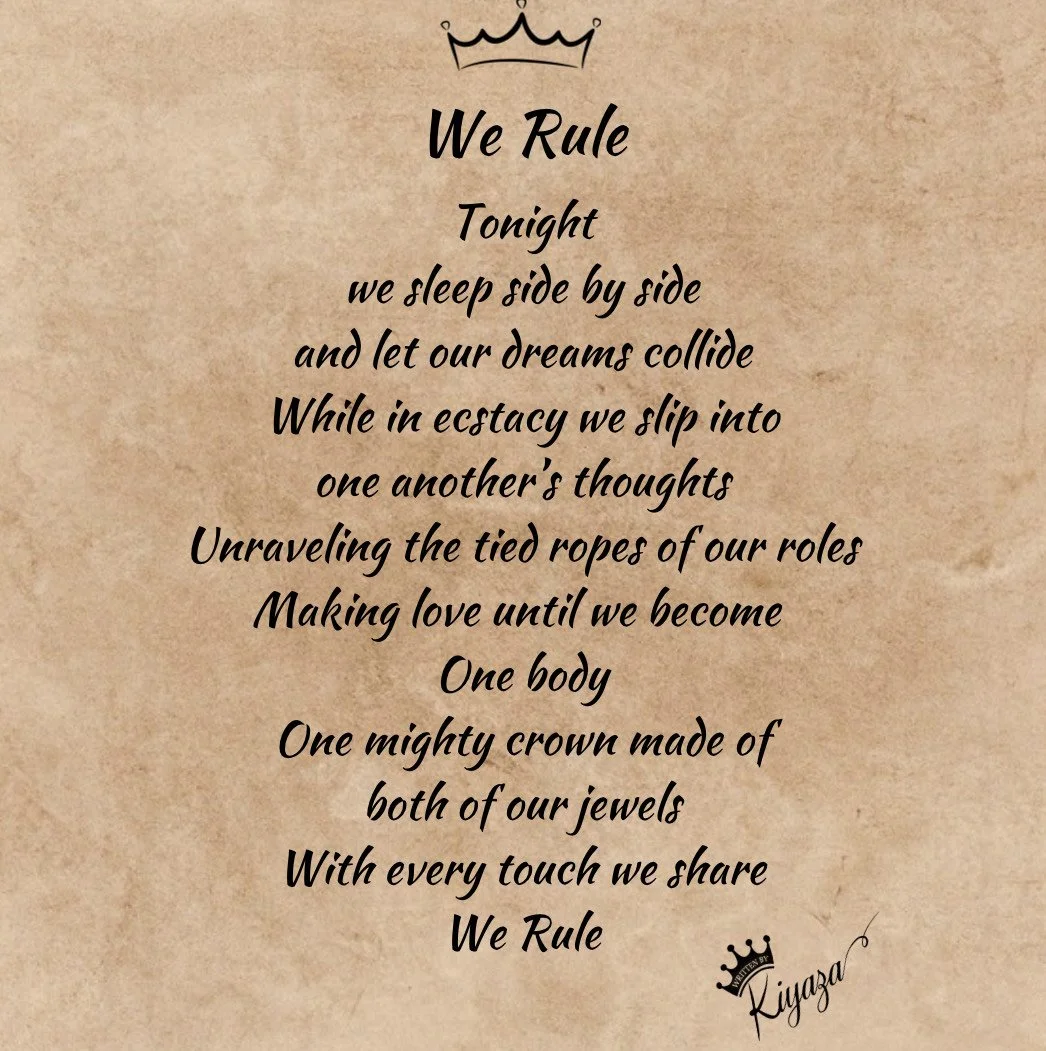 We Rule
Tonight
we sleep side by side
and let our dreams collide
While in ecstacy we slip into
one another's thoughts
Unraveling the tied ropes of our roles
Making love until we become
One body
One mighty crown made of
both of our jewels
With every touch we share
We Rule
WRITTEN BY
Kiyaza